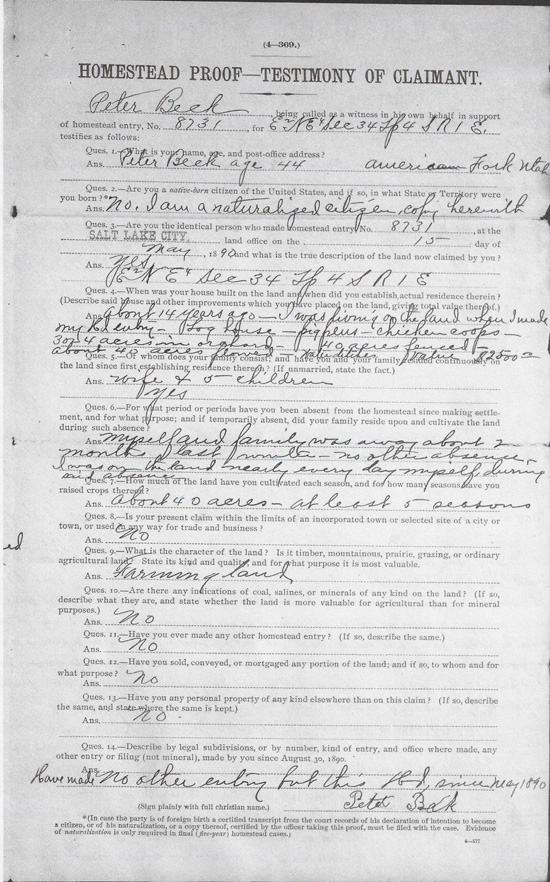 (4—369.)
HOMESTEAD PROOF—TESTIMONY OF CLAIMANT.
Peter Beck, being called as a witness in his own behalf in support
of homestead entry, No. 8731, for E½ NE¼ Sec 34 Tp 4 S R 1 E.
testifies as follows:
Ques. 1.—What is your name, age, and post-office address?
Ans. Peter Beck age 44 American Fork Utah
Ques. 2.—Are you a native-born citizen of the United States, and if so, in what State or Territory were
you born?*
Ans. No, I am a naturalized citizen, copy herewith
Ques. 3.—Are you the identical person who made homestead entry No. 8731, at the
SALT LAKE CITY, land office on the 15 day of
May, 1890 and what is the true description of the land now claimed by you?
Ans. Yes
E½ NE¼ Sec 34 Tp 4 S R 1 E
Ques. 4.—When was your house built on the land and when did you establish actual residence therein?
(Describe said house and other improvements which you have placed on the land, giving total value thereof.)
Ans. About 14 years ago — I was living on the land when I made
my Hd entry — Log house — pig pens — chicken coops —
3 or 4 acres in orchard — 40 acres fenced —
about 40 acres value $2500
Ques. 5.—Of whom does your family consist; and have you and your family resided continuously on
the land since first establishing residence therein? (If unmarried, state the fact.)
Ans. Wife & 5 children
Yes
Ques. 6.—For what period or periods have you been absent from the homestead since making settle-
ment, and for what purpose; and if temporarily absent, did your family reside upon and cultivate the land
during such absence?
Ans. Myself and family was away about 2
months last winter — no other absence —
I was on the land nearly every day myself, during
said absence
Ques. 7.—How much of the land have you cultivated each season, and for how many seasons have you
raised crops thereon?
Ans. About 40 acres — at least 5 seasons
Ques. 8.—Is your present claim within the limits of an incorporated town or selected site of a city or
town, or used in any way for trade and business?
Ans. No
ed
Ques. 9.—What is the character of the land? Is it timber, mountainous, prairie, grazing, or ordinary
agricultural land? State its kind and quality, and for what purpose it is most valuable.
Ans. Farming land
Ques. 10.—Are there any indications of coal, salines, or minerals of any kind on the land? (If so,
describe what they are, and state whether the land is more valuable for agricultural than for mineral
purposes.)
Ans. No
Ques. 11.—Have you ever made any other homestead entry? (If so, describe the same.)
Ans. No
Ques. 12.—Have you sold, conveyed, or mortgaged any portion of the land; and if so, to whom and for
what purpose?
Ans. No
Ques. 13.—Have you any personal property of any kind elsewhere than on this claim? (If so, describe
the same, and state where the same is kept.)
Ans. No -
Ques. 14.—Describe by legal subdivisions, or by number, kind of entry, and office where made, any
other entry or filing (not mineral), made by you since August 30, 1890.
Ans.
Have made No other entry but this Hd, since May 1890
(Sign plainly with full christian name.) Peter Beck
*(In case the party is of foreign birth a certified transcript from the court records of his declaration of intention to become
a citizen, or of his naturalization, or a copy thereof, certified by the officer taking this proof, must be filed with the case. Evidence
of naturalization is only required in final (five-year) homestead cases.)
4—577